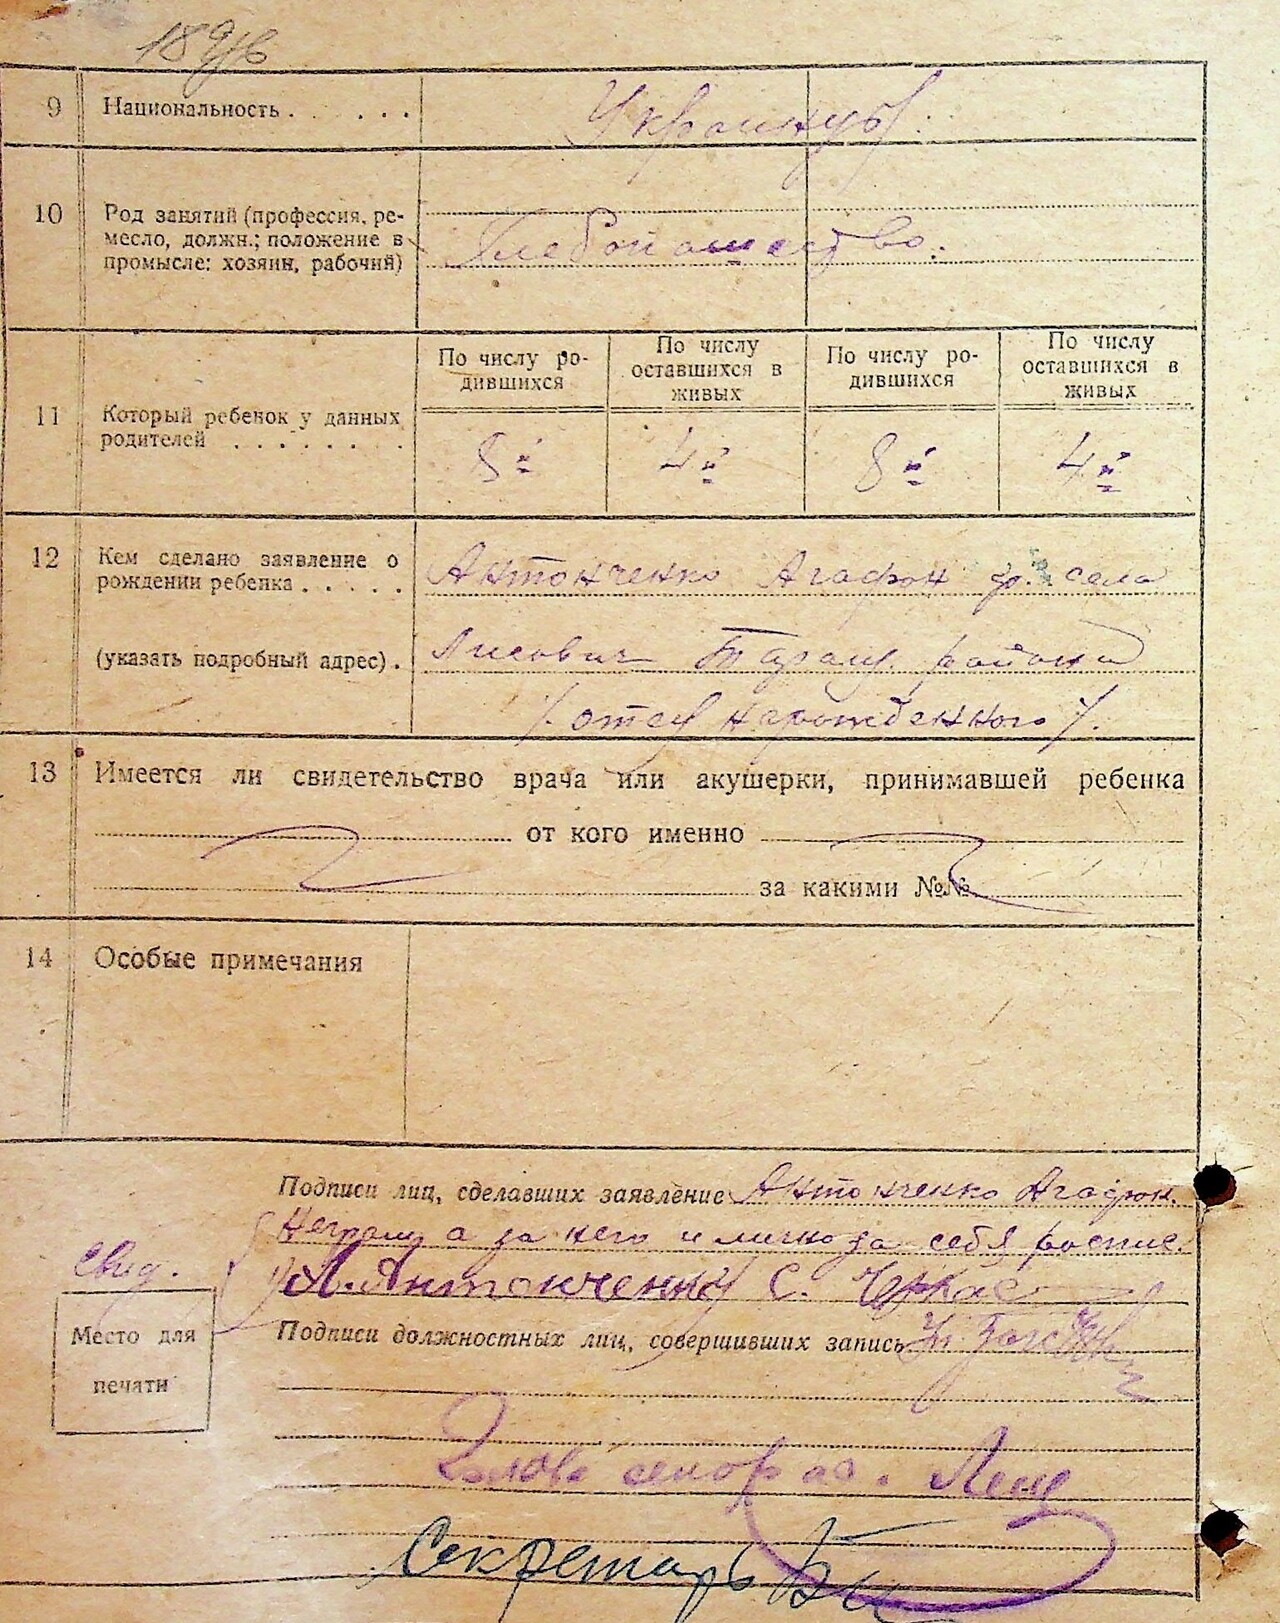 9 Национальность . . . . . Украинцы.
10 Род занятий (профессия, ре-
месло, должн.; положение в
промысле: хозяин, рабочий)
Хлебопашество.
По числу ро-
дившихся
По числу
оставшихся в
живых
По числу ро-
дившихся
По числу
оставшихся в
живых
11 Который ребенок у данных
родителей . . . . . . .
8й 4й 8й 4й
12 Кем сделано заявление о
рождении ребенка . . . . .
Антонченко Агафон гр. села
(указать подробный адрес) .
Лисович Таращ. района
/. отец нарожденного /.
13 Имеется ли свидетельство врача или акушерки, принимавшей ребенка
от кого именно
за какими №№
14 Особые примечания
Подписи лиц, сделавших заявление Антонченко Агафон.
Неграм, а за него и лично за себя роспис.
Свид. А. Антонченко С.
Место для
печати
Подписи должностных лиц, совершивших запись
Голова Лещ
Секретарь